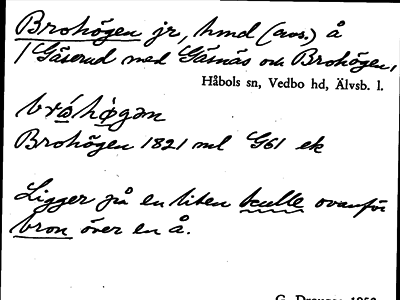 Brohögen jr, hmd (avs.) å
/ Gäserud med Gäsnäs och Brohögen,
Håbols sn, Vedbo hd, Älvsb. l.
bró̀hø̀gən
Brohögen 1821 ml G61 ek
Ligger på en liten kulle ovanför
bron över en å.